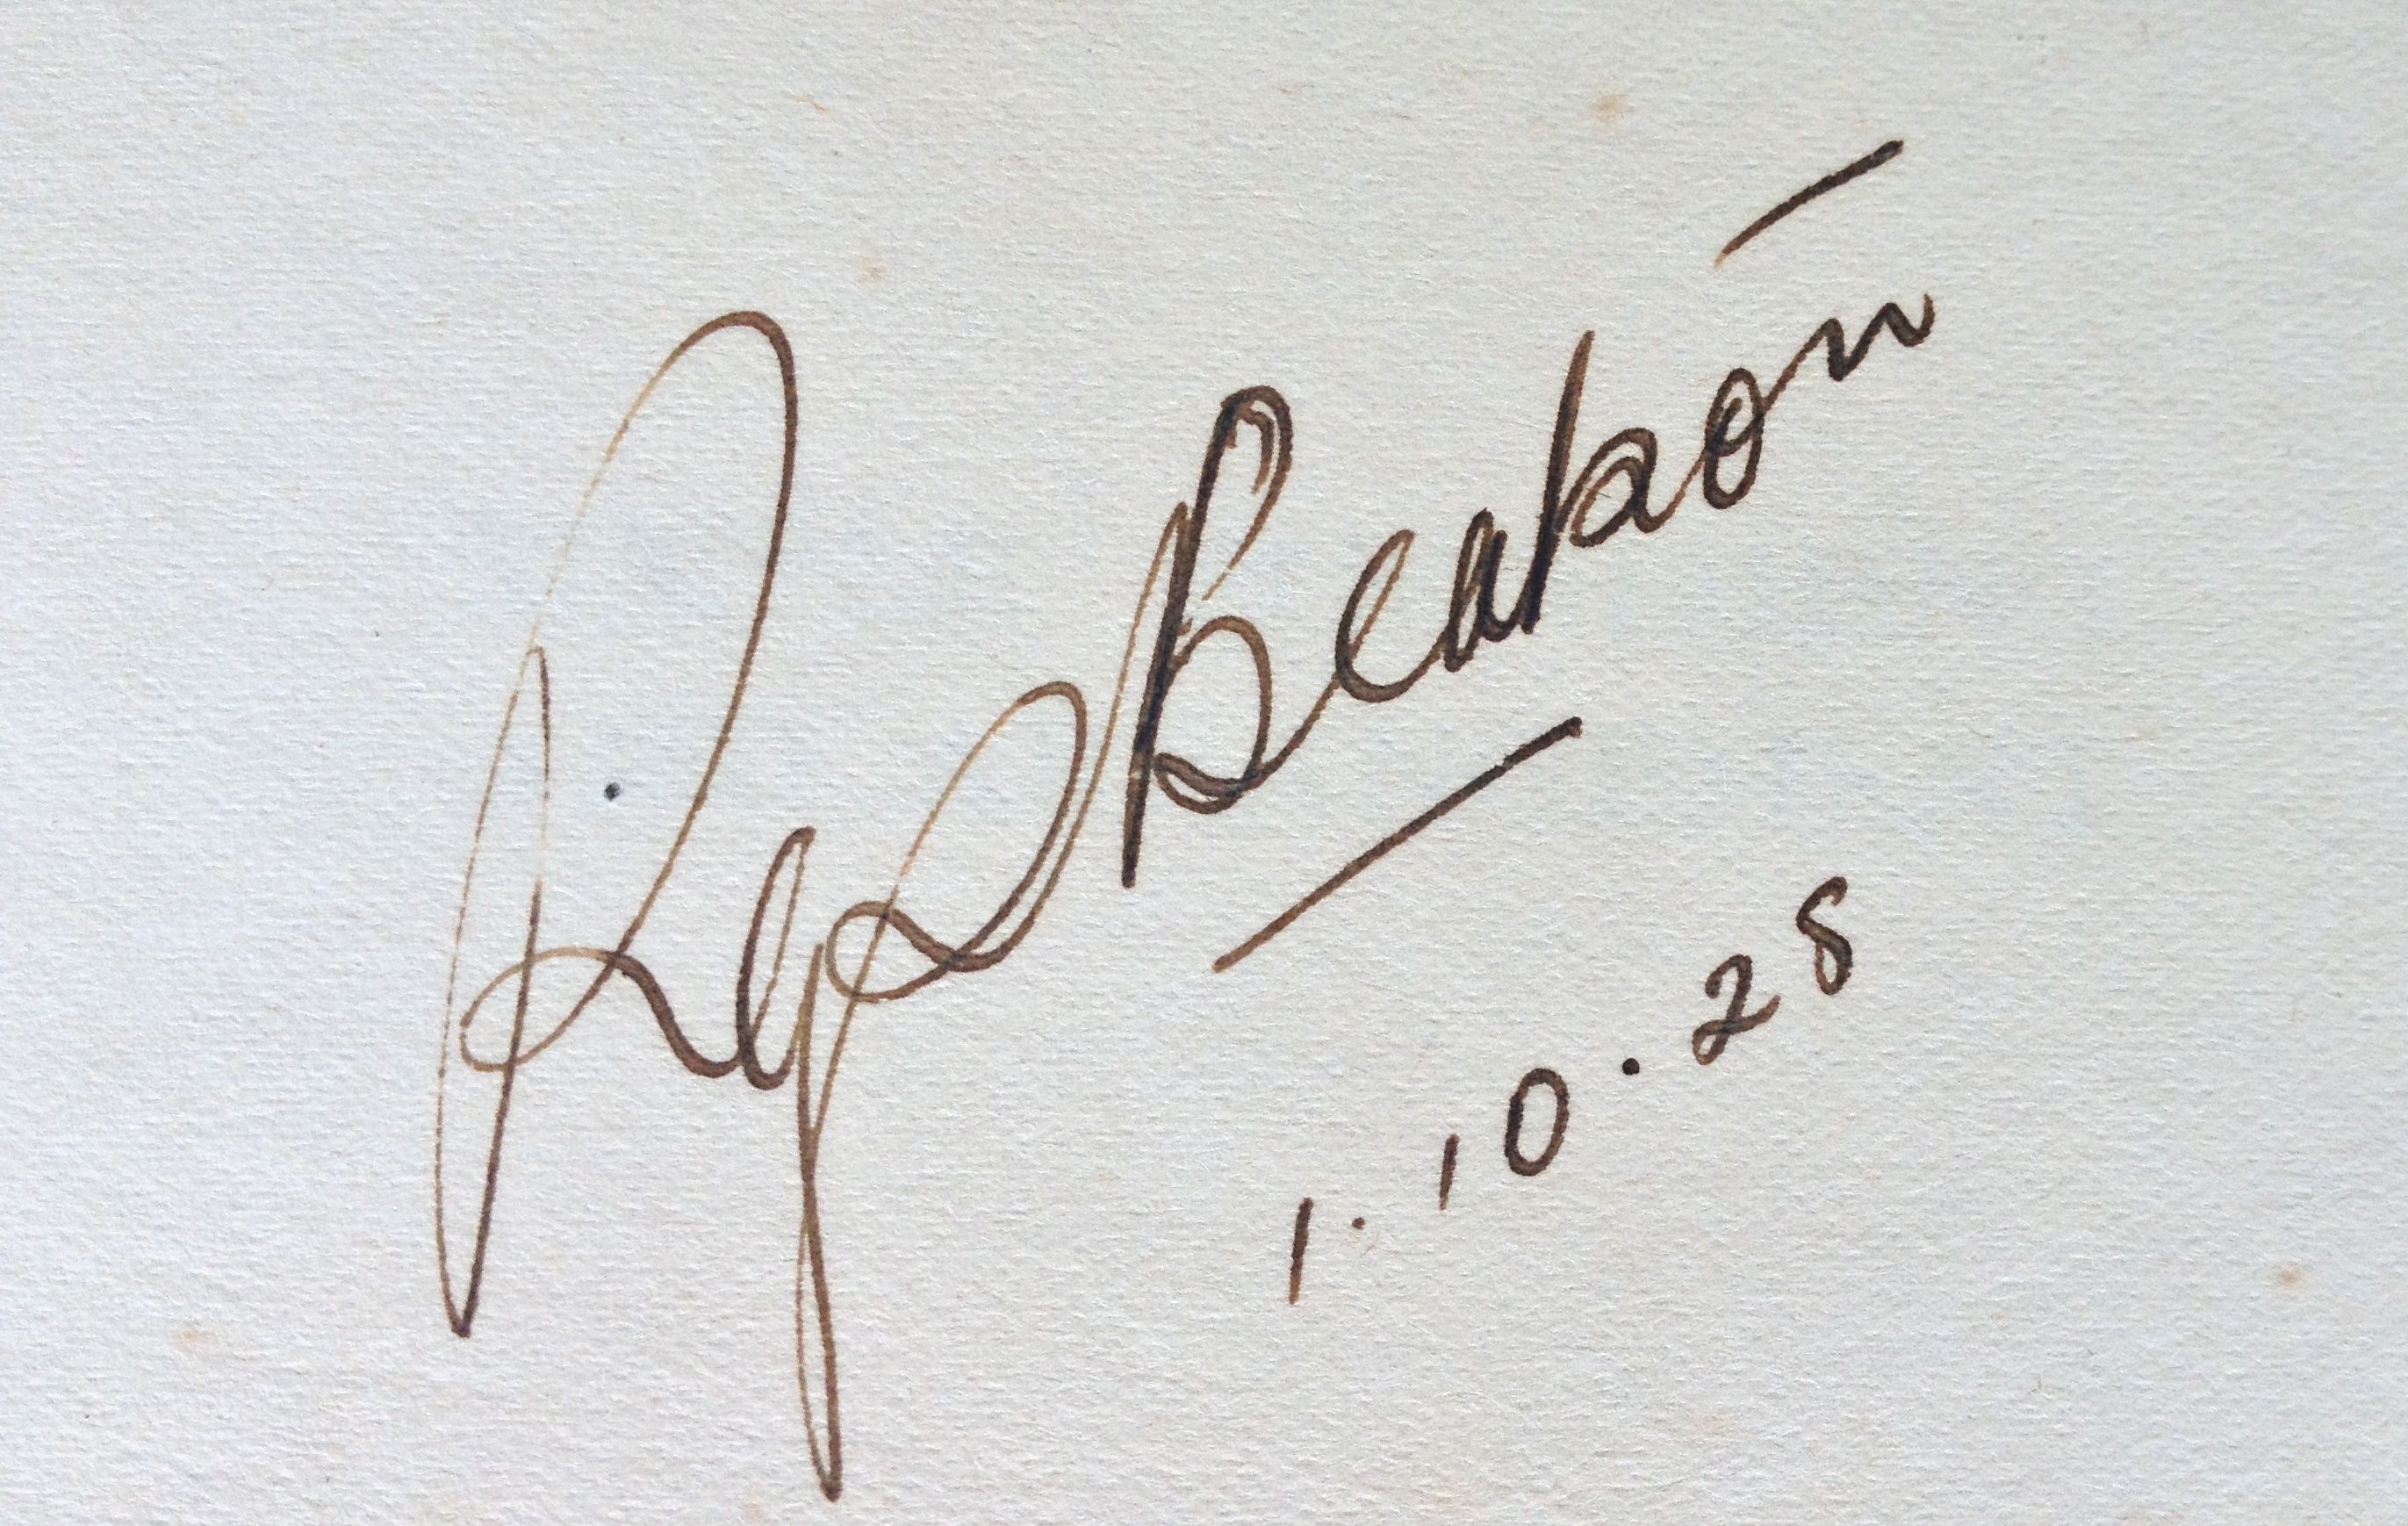 Reg S Beaton
1.10.28